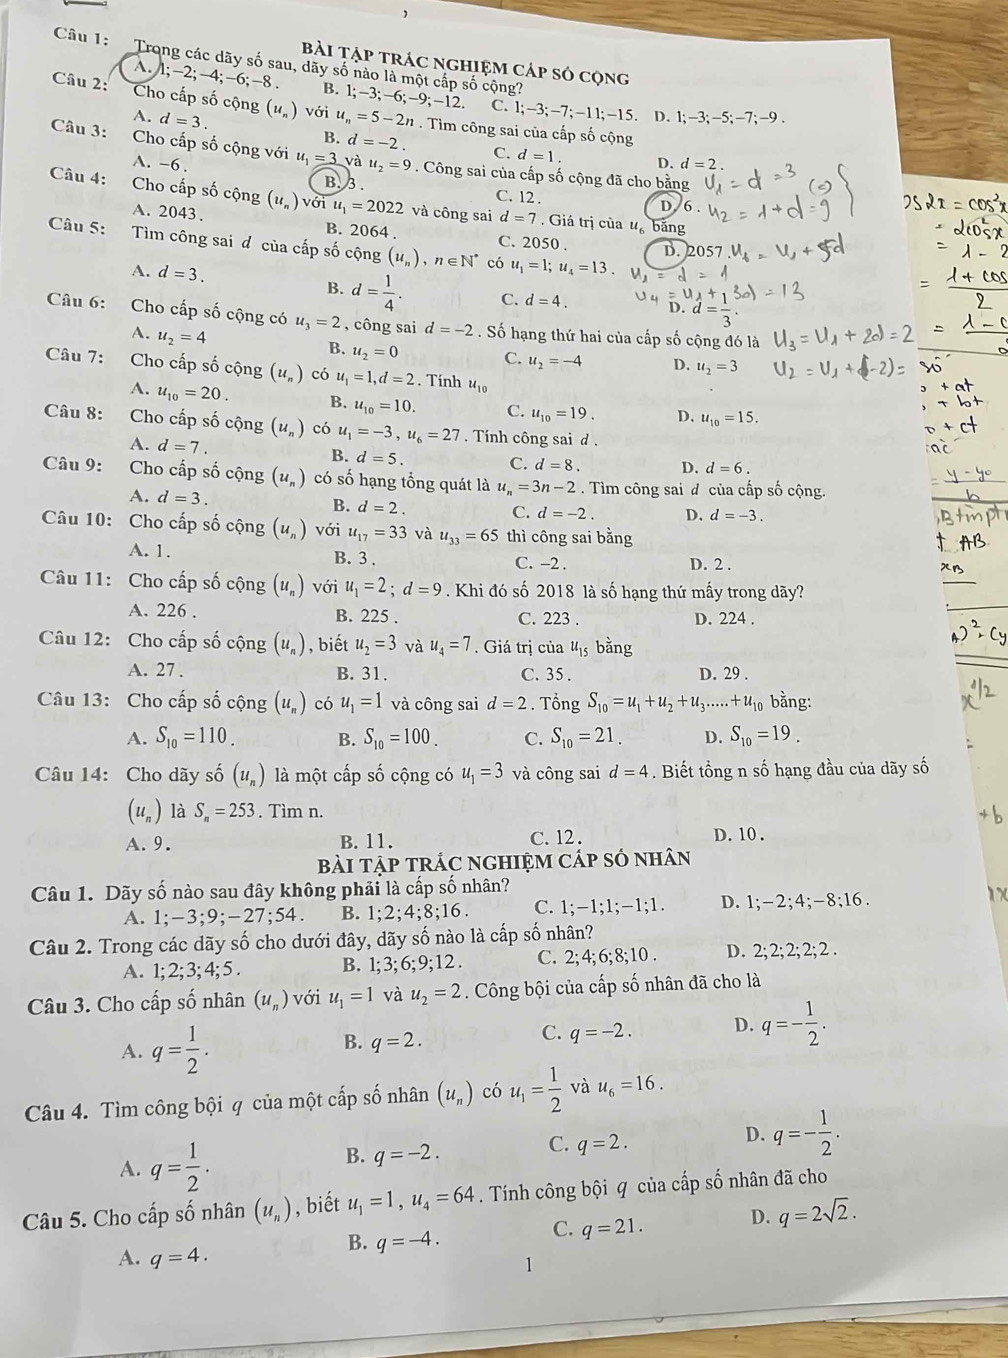 BÀI TẬP TRẮC NGHIỆM CẤP SỐ CỘNG
Câu 1: Trong các dãy số sau, dãy số nào là một cấp số cộng?
A. 1;−2;−4;−6;−8. B. 1;−3;−6;−9;−12. C. 1;−3;−7;−11;−15. D. 1;−3;−5;−7;−9.
Câu 2: Cho cấp số cộng (uₙ) với uₙ = 5 − 2n. Tìm công sai của cấp số cộng
A. d = 3. B. d = −2. C. d = 1. D. d = 2.
Câu 3: Cho cấp số cộng với u₁ = 3 và u₂ = 9. Công sai của cấp số cộng đã cho bằng
A. −6. B. 3. C. 12. D. 6.
u₁ = d = 3
u₂ = 1 + d = 9
Câu 4: Cho cấp số cộng (uₙ) với u₁ = 2022 và công sai d = 7. Giá trị của u₆ bằng
A. 2043. B. 2064. C. 2050. D. 2057. u₆ = u₁ + 5d
Câu 5: Tìm công sai d của cấp số cộng (uₙ), n ∈ N* có u₁ = 1; u₄ = 13.
u₁ = d = 1
u₄ = u₁ + 3d = 13
A. d = 3. B. d = 1/4. C. d = 4. D. d = 1/3.
Câu 6: Cho cấp số cộng có u₃ = 2, công sai d = −2. Số hạng thứ hai của cấp số cộng đó là u₃ = u₁ + 2d = 2
A. u₂ = 4 B. u₂ = 0 C. u₂ = −4 D. u₂ = 3 u₂ = u₁ + (−2) =
Câu 7: Cho cấp số cộng (uₙ) có u₁ = 1, d = 2. Tính u₁₀
A. u₁₀ = 20. B. u₁₀ = 10. C. u₁₀ = 19. D. u₁₀ = 15.
Câu 8: Cho cấp số cộng (uₙ) có u₁ = −3, u₆ = 27. Tính công sai d.
A. d = 7. B. d = 5. C. d = 8. D. d = 6.
Câu 9: Cho cấp số cộng (uₙ) có số hạng tổng quát là uₙ = 3n − 2. Tìm công sai d của cấp số cộng.
A. d = 3. B. d = 2. C. d = −2. D. d = −3.
Câu 10: Cho cấp số cộng (uₙ) với u₁₇ = 33 và u₃₃ = 65 thì công sai bằng
A. 1. B. 3. C. −2. D. 2.
Câu 11: Cho cấp số cộng (uₙ) với u₁ = 2; d = 9. Khi đó số 2018 là số hạng thứ mấy trong dãy?
A. 226. B. 225. C. 223. D. 224.
Câu 12: Cho cấp số cộng (uₙ), biết u₂ = 3 và u₄ = 7. Giá trị của u₁₅ bằng
A. 27. B. 31. C. 35. D. 29.
Câu 13: Cho cấp số cộng (uₙ) có u₁ = 1 và công sai d = 2. Tổng S₁₀ = u₁ + u₂ + u₃..... + u₁₀ bằng:
A. S₁₀ = 110. B. S₁₀ = 100. C. S₁₀ = 21. D. S₁₀ = 19.
Câu 14: Cho dãy số (uₙ) là một cấp số cộng có u₁ = 3 và công sai d = 4. Biết tổng n số hạng đầu của dãy số
(uₙ) là Sₙ = 253. Tìm n.
A. 9. B. 11. C. 12. D. 10.
BÀI TẬP TRẮC NGHIỆM CẤP SỐ NHÂN
Câu 1. Dãy số nào sau đây không phải là cấp số nhân?
A. 1;−3;9;−27;54. B. 1;2;4;8;16. C. 1;−1;1;−1;1. D. 1;−2;4;−8;16.
Câu 2. Trong các dãy số cho dưới đây, dãy số nào là cấp số nhân?
A. 1;2;3;4;5. B. 1;3;6;9;12. C. 2;4;6;8;10. D. 2;2;2;2;2.
Câu 3. Cho cấp số nhân (uₙ) với u₁ = 1 và u₂ = 2. Công bội của cấp số nhân đã cho là
A. q = 1/2. B. q = 2. C. q = −2. D. q = −1/2.
Câu 4. Tìm công bội q của một cấp số nhân (uₙ) có u₁ = 1/2 và u₆ = 16.
A. q = 1/2. B. q = −2. C. q = 2. D. q = −1/2.
Câu 5. Cho cấp số nhân (uₙ), biết u₁ = 1, u₄ = 64. Tính công bội q của cấp số nhân đã cho
A. q = 4. B. q = −4. C. q = 21. D. q = 2√2.
1